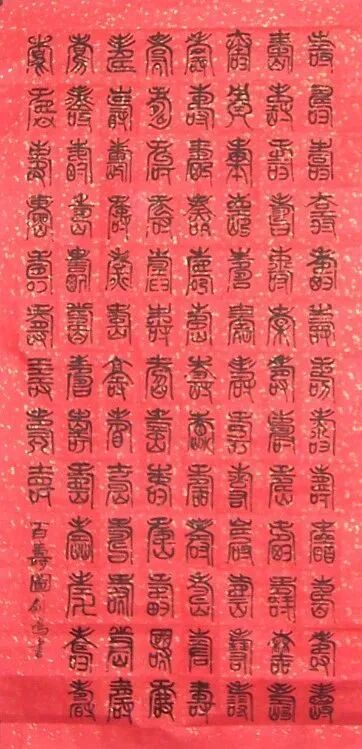 壽壽壽壽壽壽壽壽壽壽壽壽壽
壽壽壽壽壽壽壽壽壽壽壽壽壽
壽壽壽壽壽壽壽壽壽壽壽壽壽
壽壽壽壽壽壽壽壽壽壽壽壽壽
壽壽壽壽壽壽壽壽壽壽壽壽壽
壽壽壽壽壽壽壽壽壽壽壽壽壽
壽壽壽壽壽壽壽壽壽壽壽壽壽
壽壽壽壽壽壽壽壽壽百壽圖